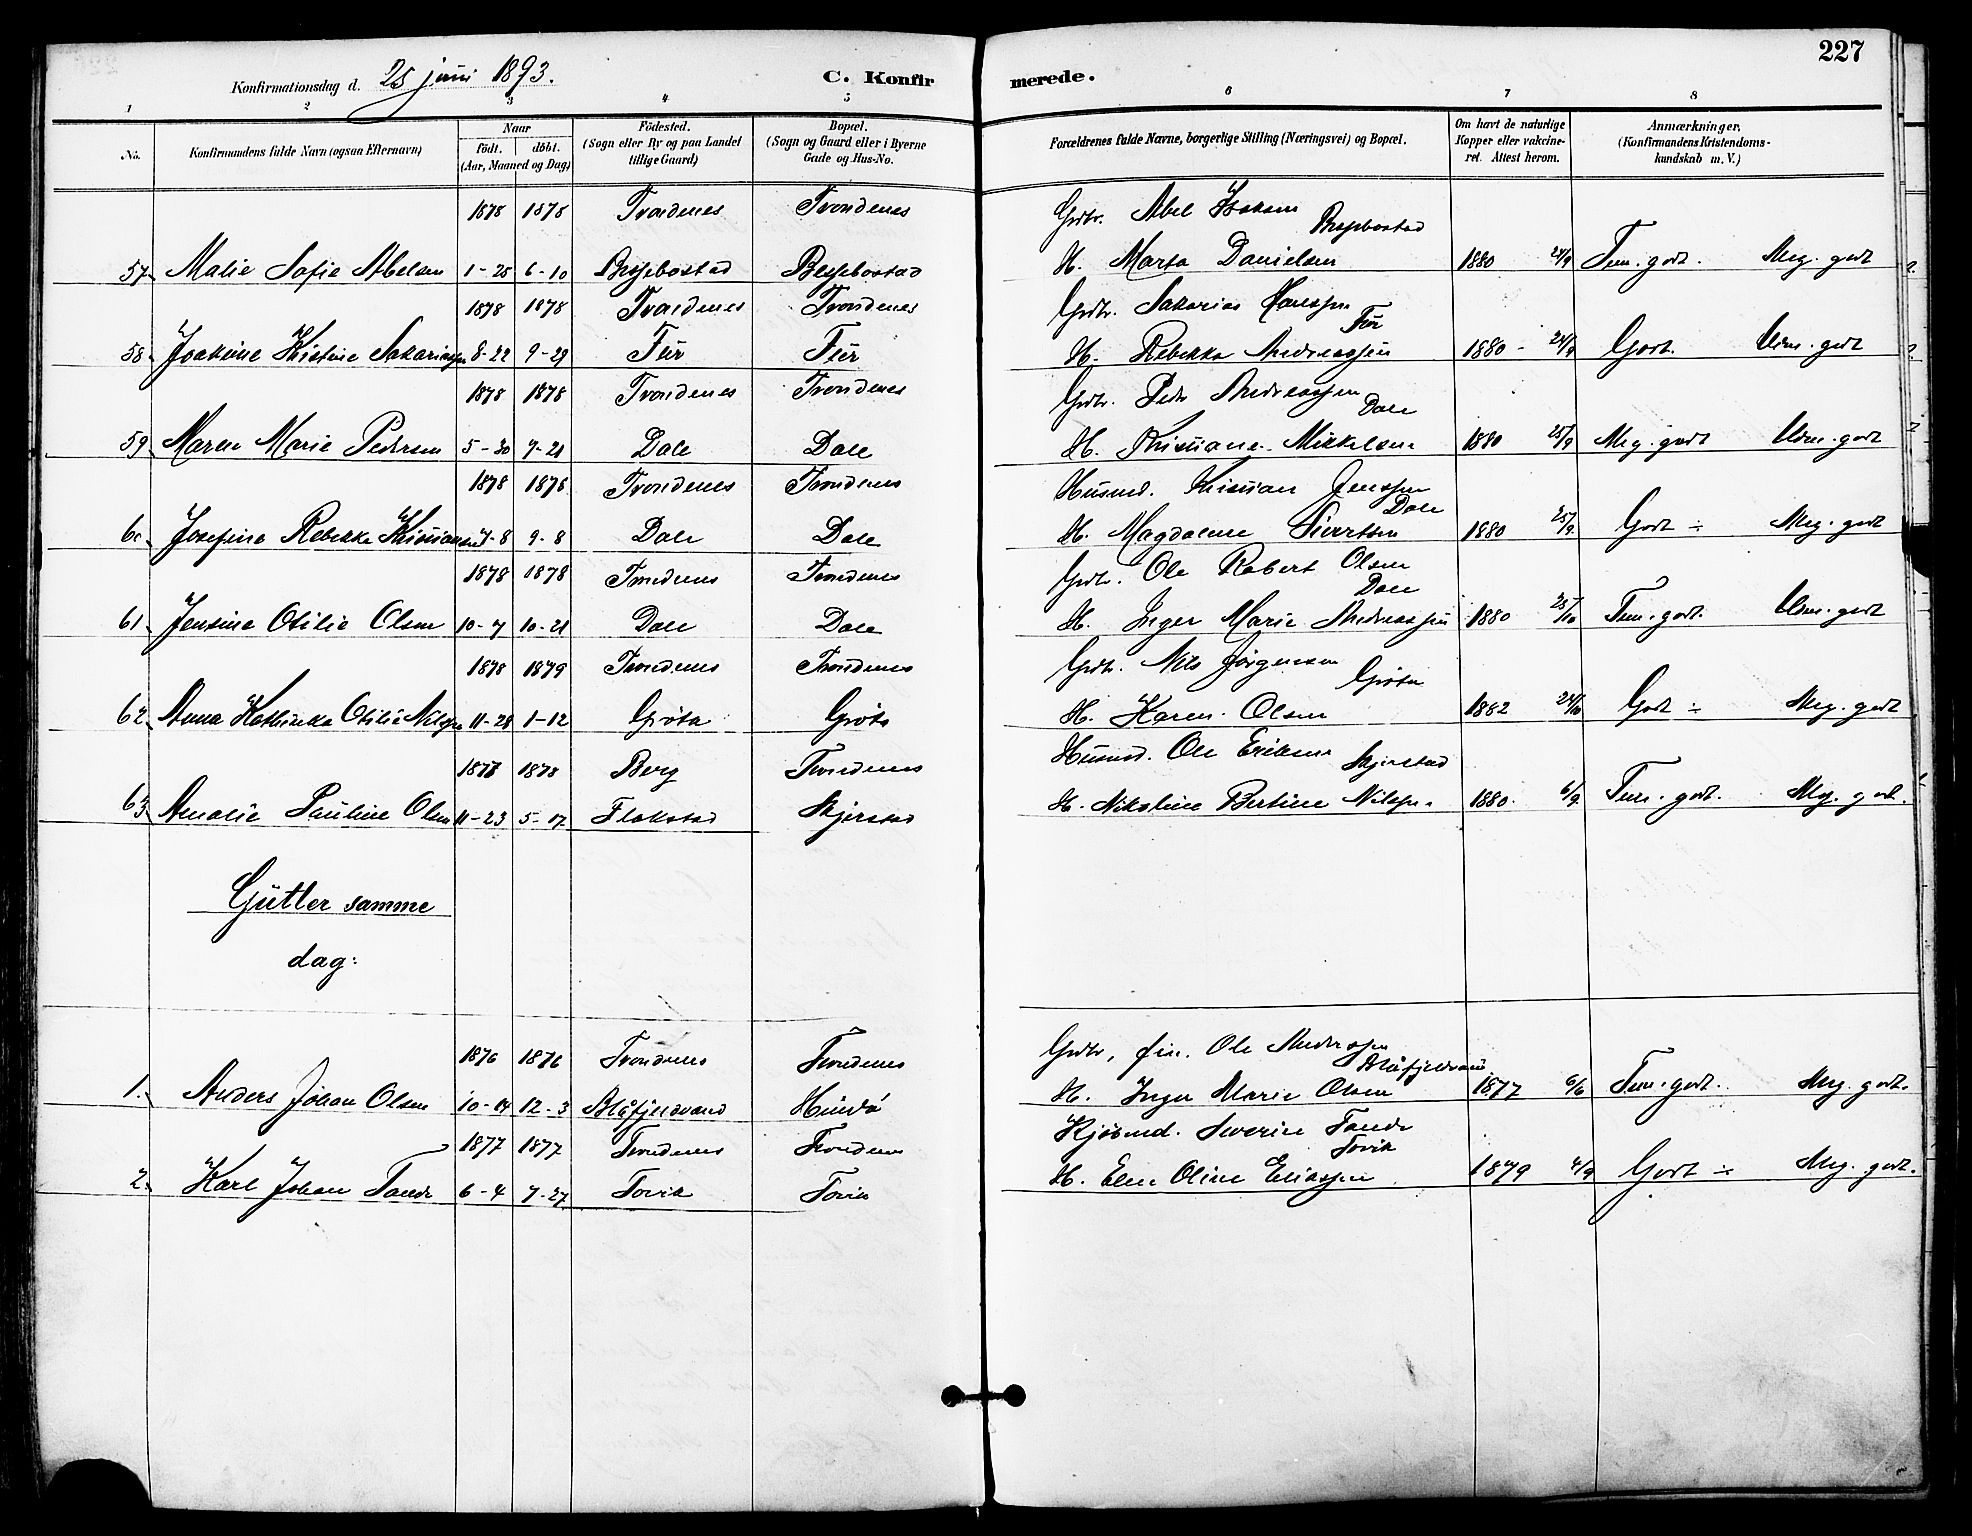 227
Konfirmationsdag d. 25 juni 1893.
C. Konfirmerede.
1 2 3 4 5 6 7 8
No. Konfirmandens fulde Navn (ogsaa Efternavn) Naar født. døbt. (Aar, Maaned og Dag) Fødested. (Sogn eller By og paa Landet tillige Gaard) Bopæl. (Sogn og Gaard eller i Byerne Gade og Hus-No. Forældrenes fulde Navne, borgerlige Stilling (Næringsvei) og Bopæl. Om havt de naturlige Kopper eller vakcineret. Attest herom. Anmærkninger, (Konfirmandens Kristendomskundskab m. V.)
1878 1878 Trondenes Trondenes Grdbr. Abel Isaksen Bessebostad
57. Malie Sofie Abelsen 1-25 6-10 Bessebostad Bessebostad H. Marta Danielsen 1880 24/9 Tem. godt. Meg. godt
1878 1878 Trondenes Trondenes Grdbr. Sakarias Hanssen
58. Joakime Kristine Sakariassen 8-22 9-29 H. Rebekka Andreassen 1880 - 24/9 Godt. Udm. godt
1878 1878 Trondenes Trondenes Grdbr. Peder Andreassen Dale
59. Maren Marie Pedersen 5-30 7-21 Dale Dale H. Kristiane Mikkelsen 1880 25/9 Meg. godt Udm. godt
1878 1878 Trondenes Trondenes Husmd. Kristian Jenssen Dale
60. Josefine Rebekka Kristiansen 7-8 9-8 Dale Dale H. Magdalene Sivertsen 1880 25/9 Godt ÷ Meg. godt
1878 1878 Trondenes Trondenes Grdbr. Ole Robert Olsen Dale
61. Jensine Otilie Olsen 10-7 10-21 Dale Dale H. Inger Marie Andreassen 1880 25/10 Tem. godt. Udm. godt
1878 1879 Trondenes Trondenes Grdbr. Nils Jørgensen Grøta
62. Anna Kathinka Otilie Nilssen 11-28 1-12 Grøta Grøta H. Karen Olsen 1882 24/10 Godt ÷ Meg. godt
1877 1878 Berg Trondenes Husmd. Ole Eriksen Skjerstad
63. Amalie Pauline Olsen 11-23 5-17 Flakstad Skjerstad H. Nikoline Bertine Nilssen 1880. 6/9 Tem. godt. Meg. godt.
Gutter samme
dag:
1876 1876 Trondenes Trondenes Grdbr, fin. Ole Anderssen Blåfjeldvand
1. Anders Johan Olsen 10-14 12-3 Blåfjeldvand Hindø H. Inger Marie Olsen 1877 6/6 Tem. godt. Meg. godt.
1877 1877 Trondenes Trondenes Kjøbmd. Severin Tande Tovik
2. Karl Johan Tande 6-4 7-27 Tovik Tovik H. Elen Oline Erikssen 1879 4/9 Godt ÷ Meg. godt.